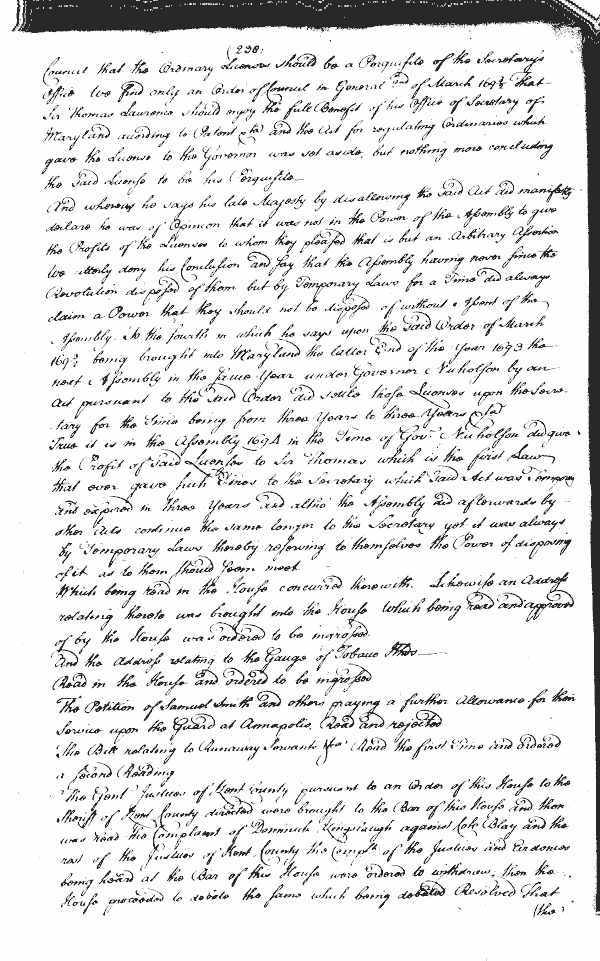 (238)
Council that the Ordinary Licenses should be a Perquisite of the Secretary's
Office We find only an Order of Council in General 2nd of March 169½ That
Sir Thomas Lawrence should enjoy the full Benefit of his Office of Secretary of
Maryland according to Patent &ca and the Act for regulating Ordinaries which
gave the License to the Governor was set aside, but nothing more concluding
the said License to be his Perquisite
And whereas he says his late Majesty by disallowing the said Act did manifestly
declare he was of Opinion that it was not in the Power of the Assembly to give
the Profits of the Licenses to whom they pleased that is but an Arbitrary Assertion
We utterly deny his Conclusion and say that the Assembly having never since the
Revolution disposed of them but by Temporary Laws for a Time did always
claim a Power that they should not be disposed of without Assent of the
Assembly. To the fourth in which he says upon the said Order of March
169½ being brought into Maryland the latter End of the Year 1693 the
next Assembly in the same Year under Governor Nicholson by an
Act pursuant to the said Order did settle those Licenses upon the Secre-
tary for the Time being from three Years to three Years &ca
True it is in the Assembly 1694 in the Time of Govr. Nicholson did give
the Profit of said Licenses to Sir Thomas which is the first Law
that ever gave such Fines to the Secretary which said Act was Temporary
and expired in three Years and altho the Assembly did afterwards by
other Acts continue the same longer to the Secretary yet it was always
by Temporary Laws thereby reserving to themselves the Power of disposing
of it as to them should seem meet
Which being read in the House concurred therewith. Likewise an Address
relating thereto was brought into the House which being read and approved
of by the House was ordered to be ingrossed
And the Address relating to the Gauge of Tobacco Hhds
Read in the House and ordered to be ingrossed
The Petition of Samuel Smith and others praying a further Allowance for their
Service upon the Guard at Annapolis, Read and rejected
The Bill relating to Runaway Servants &ca Read the first Time and ordered
a second Reading
The Gent Justices of Kent County pursuant to an Order of this House to the
Sheriff of Kent County directed were brought to the Bar of this House and then
was read the Complaint of Dominick against Colo. Blay and the
rest of the Justices of Kent County the Complt. of the Justices and Evidences
being heard at the Bar of this House were ordered to withdraw, then the
House proceeded to debate the same which being debated Resolved That
(the